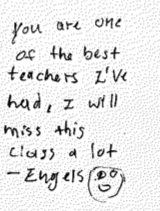 you are one
of the best
teachers I've
had, I will
miss this
class a lot
- Engels